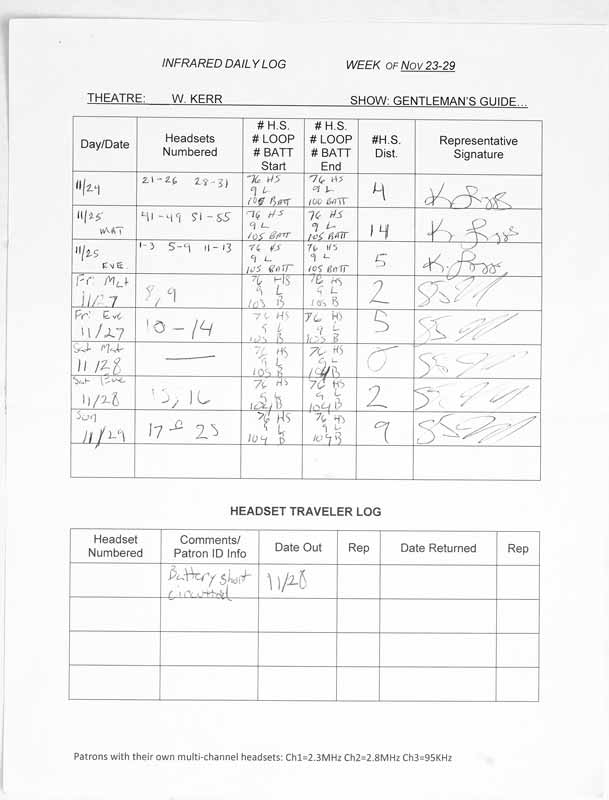 INFRARED DAILY LOG WEEK OF NOV 23-29
THEATRE: W. KERR SHOW: GENTLEMAN'S GUIDE...
Day/Date Headsets Numbered # H.S. # LOOP # BATT Start # H.S. # LOOP # BATT End #H.S. Dist. Representative Signature
11/24 21-26 28-31 76 HS 9 L 105 BATT 76 HS 9 L 100 BATT 4
11/25 MAT 41-49 51-55 76 HS 9 L 105 BATT 76 HS 9 L 105 BATT 14
11/25 EVE. 1-3 5-9 11-13 76 HS 9L 105 BATT 76 HS 9L 105 BATT 5
Fri Mat 11/27 8, 9 76 HS 9 L 105 B 76 HS 9 L 105 B 2
Fri Eve 11/27 10-14 76 HS 9 L 105 B 76 HS 9L 105 B 5
Sat Mat 11/28 — 76 HS 9L 105 B 76 HS 9L 104 B 0
Sat Eve 11/28 15, 16 76 HS 9L 104 B 76 HS 9L 104 B 2
Sun 11/29 17 25 76 HS 9 L 104 B 76 HS 9L 104 B 9
HEADSET TRAVELER LOG
Headset Numbered Comments/ Patron ID Info Date Out Rep Date Returned Rep
Battery short 11/28
circuited
Patrons with their own multi-channel headsets: Ch1=2.3MHz Ch2=2.8MHz Ch3=95KHz